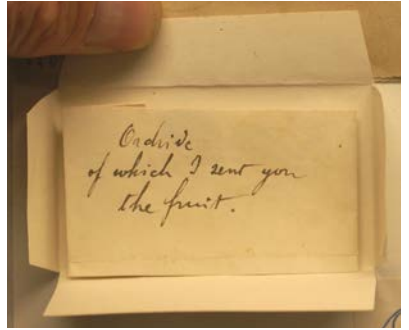 Orchidé
of which I sent you
the fruit.